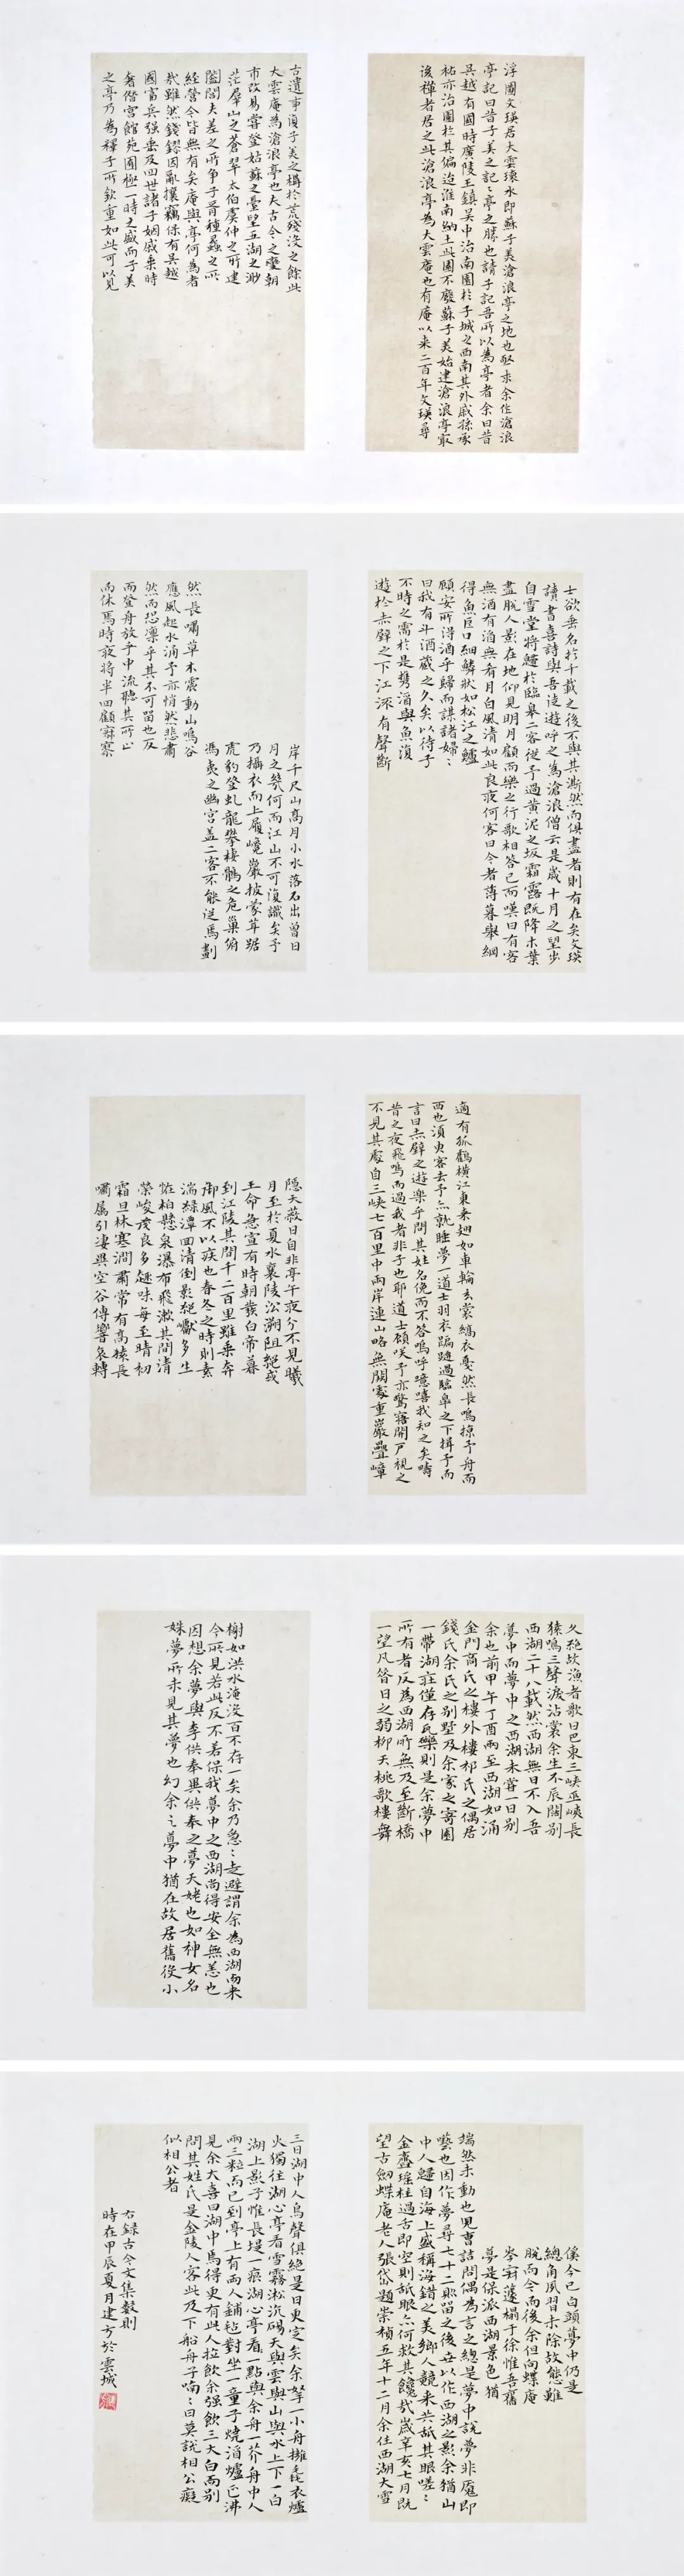 浮圖文瑛居大雲環水即蘇子美滄浪亭之地也亟求余作滄浪
亭記曰昔子美之記〻亭之勝也請子記吾所以為亭者余曰昔
吳越有國時廣陵王鎮吳中治南園於子城之西南其外戚孫承
祐亦治園於其偏迨淮南納土此園不廢蘇子美始建滄浪亭最
後禪者居之此滄浪亭為大雲庵也有庵以来二百年文瑛尋
古遺事復子美之構於荒殘沒之餘此
大雲庵為滄浪亭也夫古今之變朝
市改易嘗登姑蘇之臺望五湖之渺
茫羣山之蒼翠太伯虞仲之所建
闔閭夫差之所争子胥種蠡之所
經營今皆無有矣庵與亭何為者
哉雖然錢鏐因亂攘竊保有吳越
國富兵强垂及四世諸子姻戚乘時
奢僭宮館苑囿極一時之盛而子美
之亭乃為釋子所欽重如此可以見
士欲垂名於千載之後不與其澌然而俱盡者則有在矣文瑛
讀書喜詩與吾徒遊呼之為滄浪僧云是歲十月之望步
自雪堂將歸於臨皋二客從予過黃泥之坂霜露既降木葉
盡脫人影在地仰見明月顧而樂之行歌相答已而嘆曰有客
無酒有酒無肴月白風清如此良夜何客曰今者薄暮舉網
得魚巨口細鱗狀如松江之鱸
顧安所得酒乎歸而謀諸婦〻
曰我有斗酒藏之久矣以待子
不時之需於是攜酒與魚復
遊於赤壁之下江流有聲斷
岸千尺山高月小水落石出曾日
月之幾何而江山不可復識矣予
乃攝衣而上履巉巖披蒙茸踞
虎豹登虬龍攀棲鶻之危巢俯
馮夷之幽宮蓋二客不能從焉劃
然長嘯草木震動山鳴谷
應風起水涌予亦悄然悲肅
然而恐凜乎其不可留也反
而登舟放乎中流聽其所止
而休焉時夜將半四顧寂寥
適有孤鶴橫江東来翅如車輪玄裳縞衣戛然長鳴掠予舟而
西也須臾客去予亦就睡夢一道士羽衣蹁躚過臨皋之下揖予而
言曰赤壁之遊樂乎問其姓名俛而不答嗚呼噫嘻我知之矣疇
昔之夜飛鳴而過我者非子也耶道士顧笑予亦驚寤開户視之
不見其處自三峽七百里中兩岸連山略無闕處重巖疊嶂
隱天蔽日自非亭午夜分不見曦
月至於夏水襄陵沿溯阻絕或
王命急宣有時朝發白帝暮
到江陵其間千二百里雖乘奔
御風不以疾也春冬之時則素
湍綠潭回清倒影絕巘多生
怪柏懸泉瀑布飛漱其間清
榮峻茂良多趣味每至晴初
霜旦林寒澗肅常有高猿長
嘯屬引淒異空谷傳響哀轉
久絕故漁者歌曰巴東三峽巫峽長
猿鳴三聲淚沾裳余生不辰闊别
西湖二十八載然西湖無日不入吾
夢中而夢中之西湖未嘗一日别
余也前甲午丁酉兩至西湖如涌
金門商氏之樓外樓祁氏之偶居
錢氏余氏之别墅及余家之寄園
一帶湖莊僅存瓦礫則是余夢中
所有者反為西湖所無及至斷橋
一望凡昔日之弱柳夭桃歌樓舞
榭如洪水淹沒百不存一矣余乃急〻走避謂余為西湖而来
今所見若此反不若保我夢中之西湖尚得安全無恙也
因想余夢與李供奉異供奉之夢天姥也如神女名
姝夢所未見其夢也幻余之夢中猶在故居舊役小
傒今已白頭夢中仍是
總角夙習未除故態難
脫而今而後余但向蝶庵
岑寂蘧榻于徐惟吾舊
夢是保一派西湖景色猶
端然未動也兒曹詰問偶為言之總是夢中說夢非魘即
囈也因作夢尋七十二則留之後世以作西湖之影余猶山
中人歸自海上盛稱海錯之美鄉人競来共舐其眼嗟〻
金虀瑤柱過舌即空則舐眼亦何救其饞哉歲辛亥七月既
望古劍蝶庵老人張岱題崇禎五年十二月余住西湖大雪
三日湖中人鳥聲俱絕是日更定矣余拏一小舟擁毳衣爐
火獨往湖心亭看雪霧淞沆碭天與雲與山與水上下一白
湖上影子惟長堤一痕湖心亭一點與余舟一芥舟中人
兩三粒而已到亭上有兩人鋪氈對坐一童子燒酒爐正沸
見余大喜曰湖中焉得更有此人拉飲余强飲三大白而别
問其姓氏是金陵人客此及下船舟子喃〻曰莫說相公癡
似相公者
右録古今文集數則
時在甲辰夏月建方於雲城